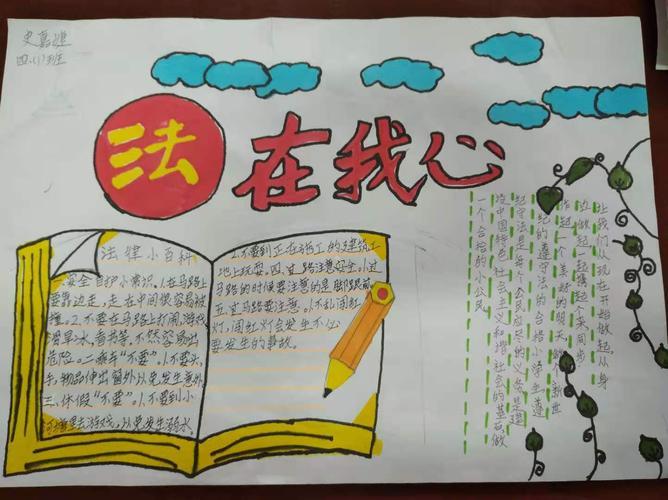 史嘉
四、(1)班
法在我心
法律小百科
一.安全自护小常识.1.在马路上
要靠边走,走在中间很容易被
撞。2.不要在马路上打闹,游戏
滑旱冰,看书等,不然容易出
危险。二.乘车“不要”.1.不要头,
手,物品伸出窗外以免发生意外
三、休假“不要”。1.不要到小
河塘里去游戏,以免发生溺水.
2.不要到正在施工的建筑工
地上玩耍.四.过路注意安全.1.过
马路的时候要注意的是 脚跟前
五.过马路要注意。1.不乱闯红
灯,闯红灯会发生不必
要发生的事故。
让我们从现在开始做起,从身
边做起一起携起个来同步
作起一个美好的明天做个新世
纪的遵守法的合格小学生遵
纪守法是每个公民应尽的义务是建
设中国特色社会主义和谐社会的基石,做
一个合格的小公民